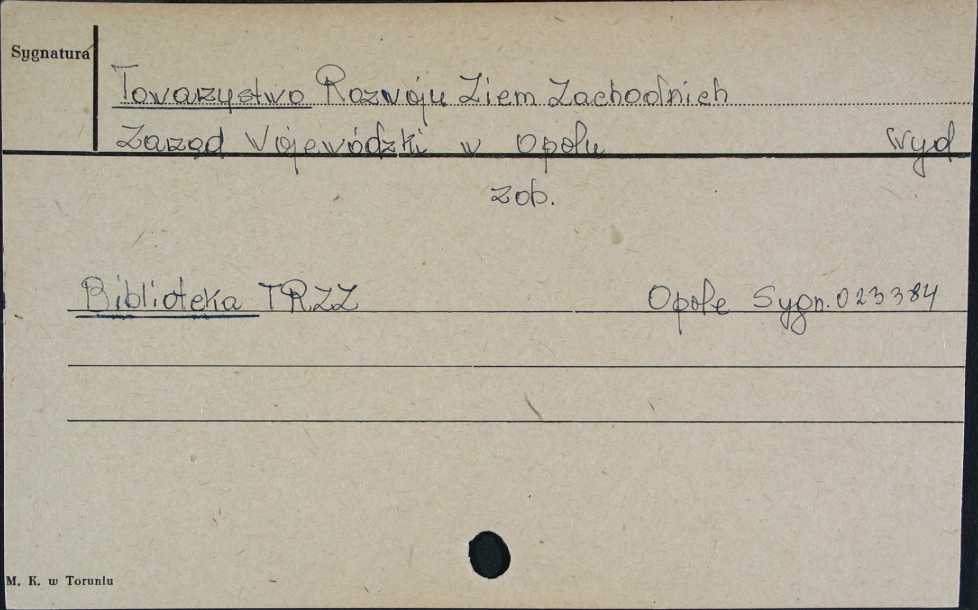 Sygnatura
Towarzystwo Rozwoju Ziem Zachodnich
Zarząd Wojewódzki w Opolu Wyd
zob.
Biblioteka TRZZ Opole Sygn. 023384
M. K. w Toruniu